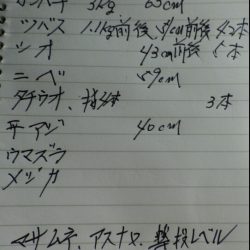 カンパチ 3kg 65cm
ツバス 1.1kg前後 47cm前後 42本
シオ 43cm前後 5本
ニベ 59cm
タチウオ、指4本 3本
平アジ 40cm
ウマズラ
メジカ
マサムネ、アスナロ レベル